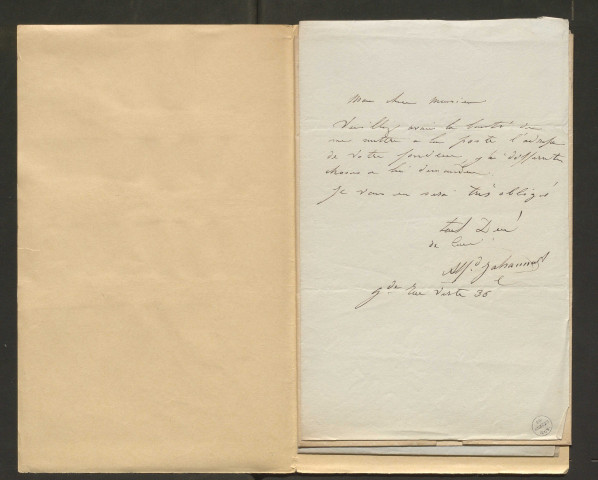 Mon cher monsieur
Veuillez avoir la bonté de
me mettre a la poste l'adresse
de votre fondeur, j'ai différentes
choses a lui demander.
Je vous en serai très obligé
tout Dévoué
de Coeur
Alfd Johannot
gde Rue Verte 36